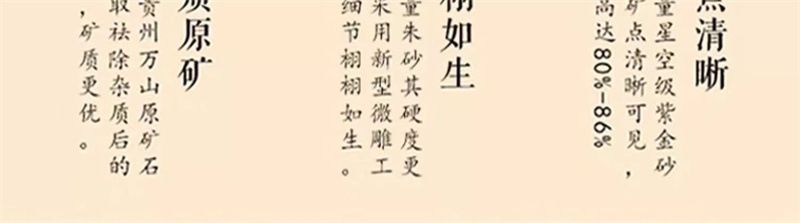 点清晰
量星空级紫金砂
矿点清晰可见，
高达80%-86%
栩如生
量朱砂其硬度更
采用新型微雕工
细节栩栩如生。
质原矿
贵州万山原矿石
取祛除杂质后的
，矿质更优。